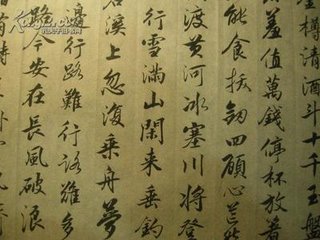 樽清酒斗十千玉盤
羞值萬錢停杯放箸
能食拔劍四顧心茫
渡黃河冰塞川將登
行雪滿山閑来垂釣
溪上忽復乘舟夢
邊行路難行路難多
路今安在長風破浪
時